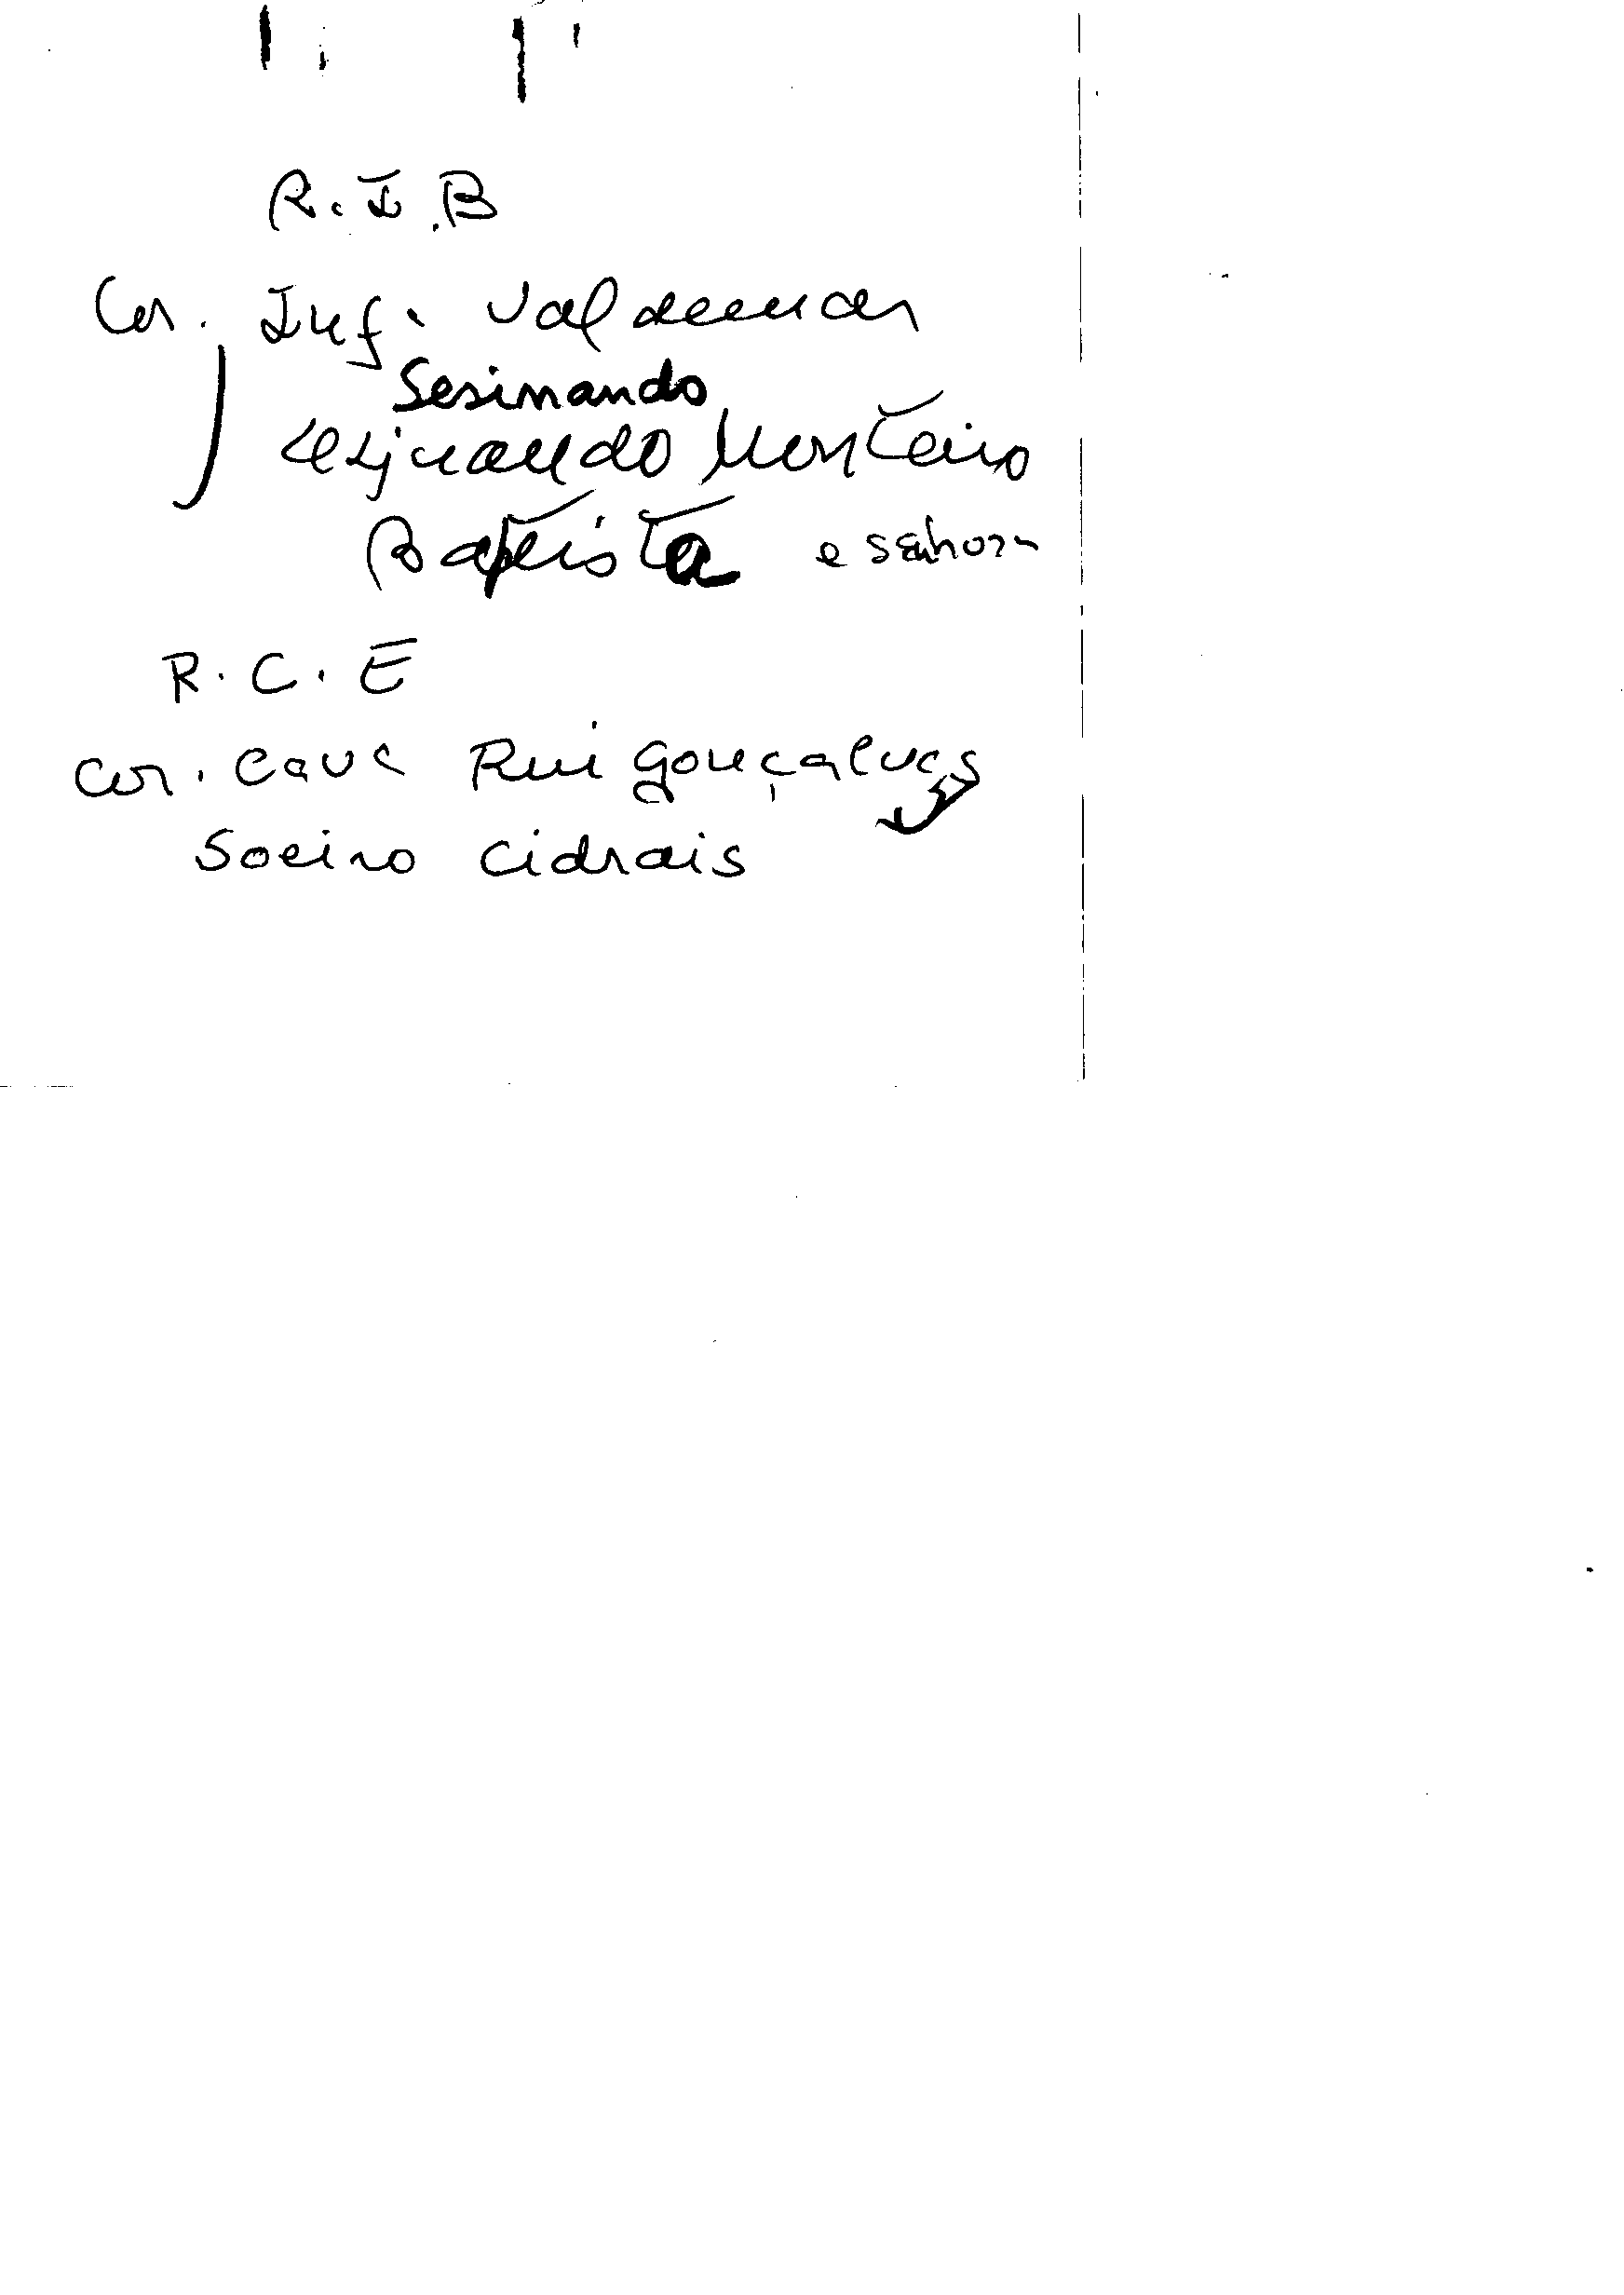 R.I.B
Cor. Inf. Valdemar
Sesinando
Monteiro
Baptista e senhora
R.C.E
Cor. Cav Rui Gonçalves
Soeiro Cidrais